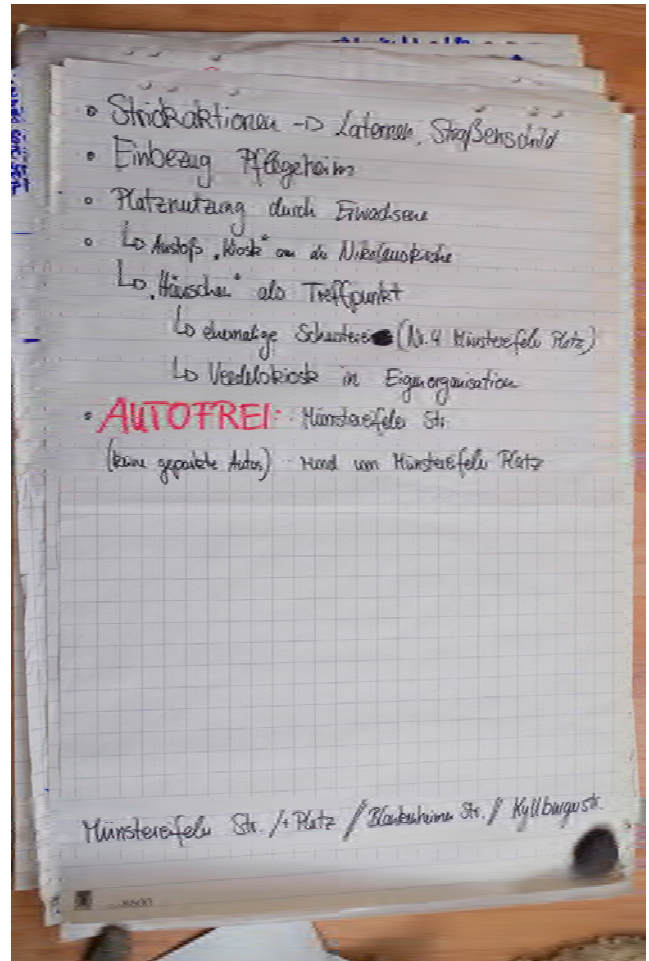 • Strickaktionen → Laternen, Straßenschild
• Einbezug Pflegeheim
• Platznutzung durch Erwachsene
• ↳ Anstoß „Kiosk“ an die Nikolauskirche
↳ „Häuschen“ als Treffpunkt
↳ ehemalige (Nr. 4 Münstereifeler Platz)
↳ Veedelskiosk in Eigenorganisation
• AUTOFREI: Münstereifeler Str.
(keine geparkte Autos) rund um Münstereifeler Platz
Münstereifeler Str. /+ Platz // Blankenheimer Str. // Kyllburger Str.